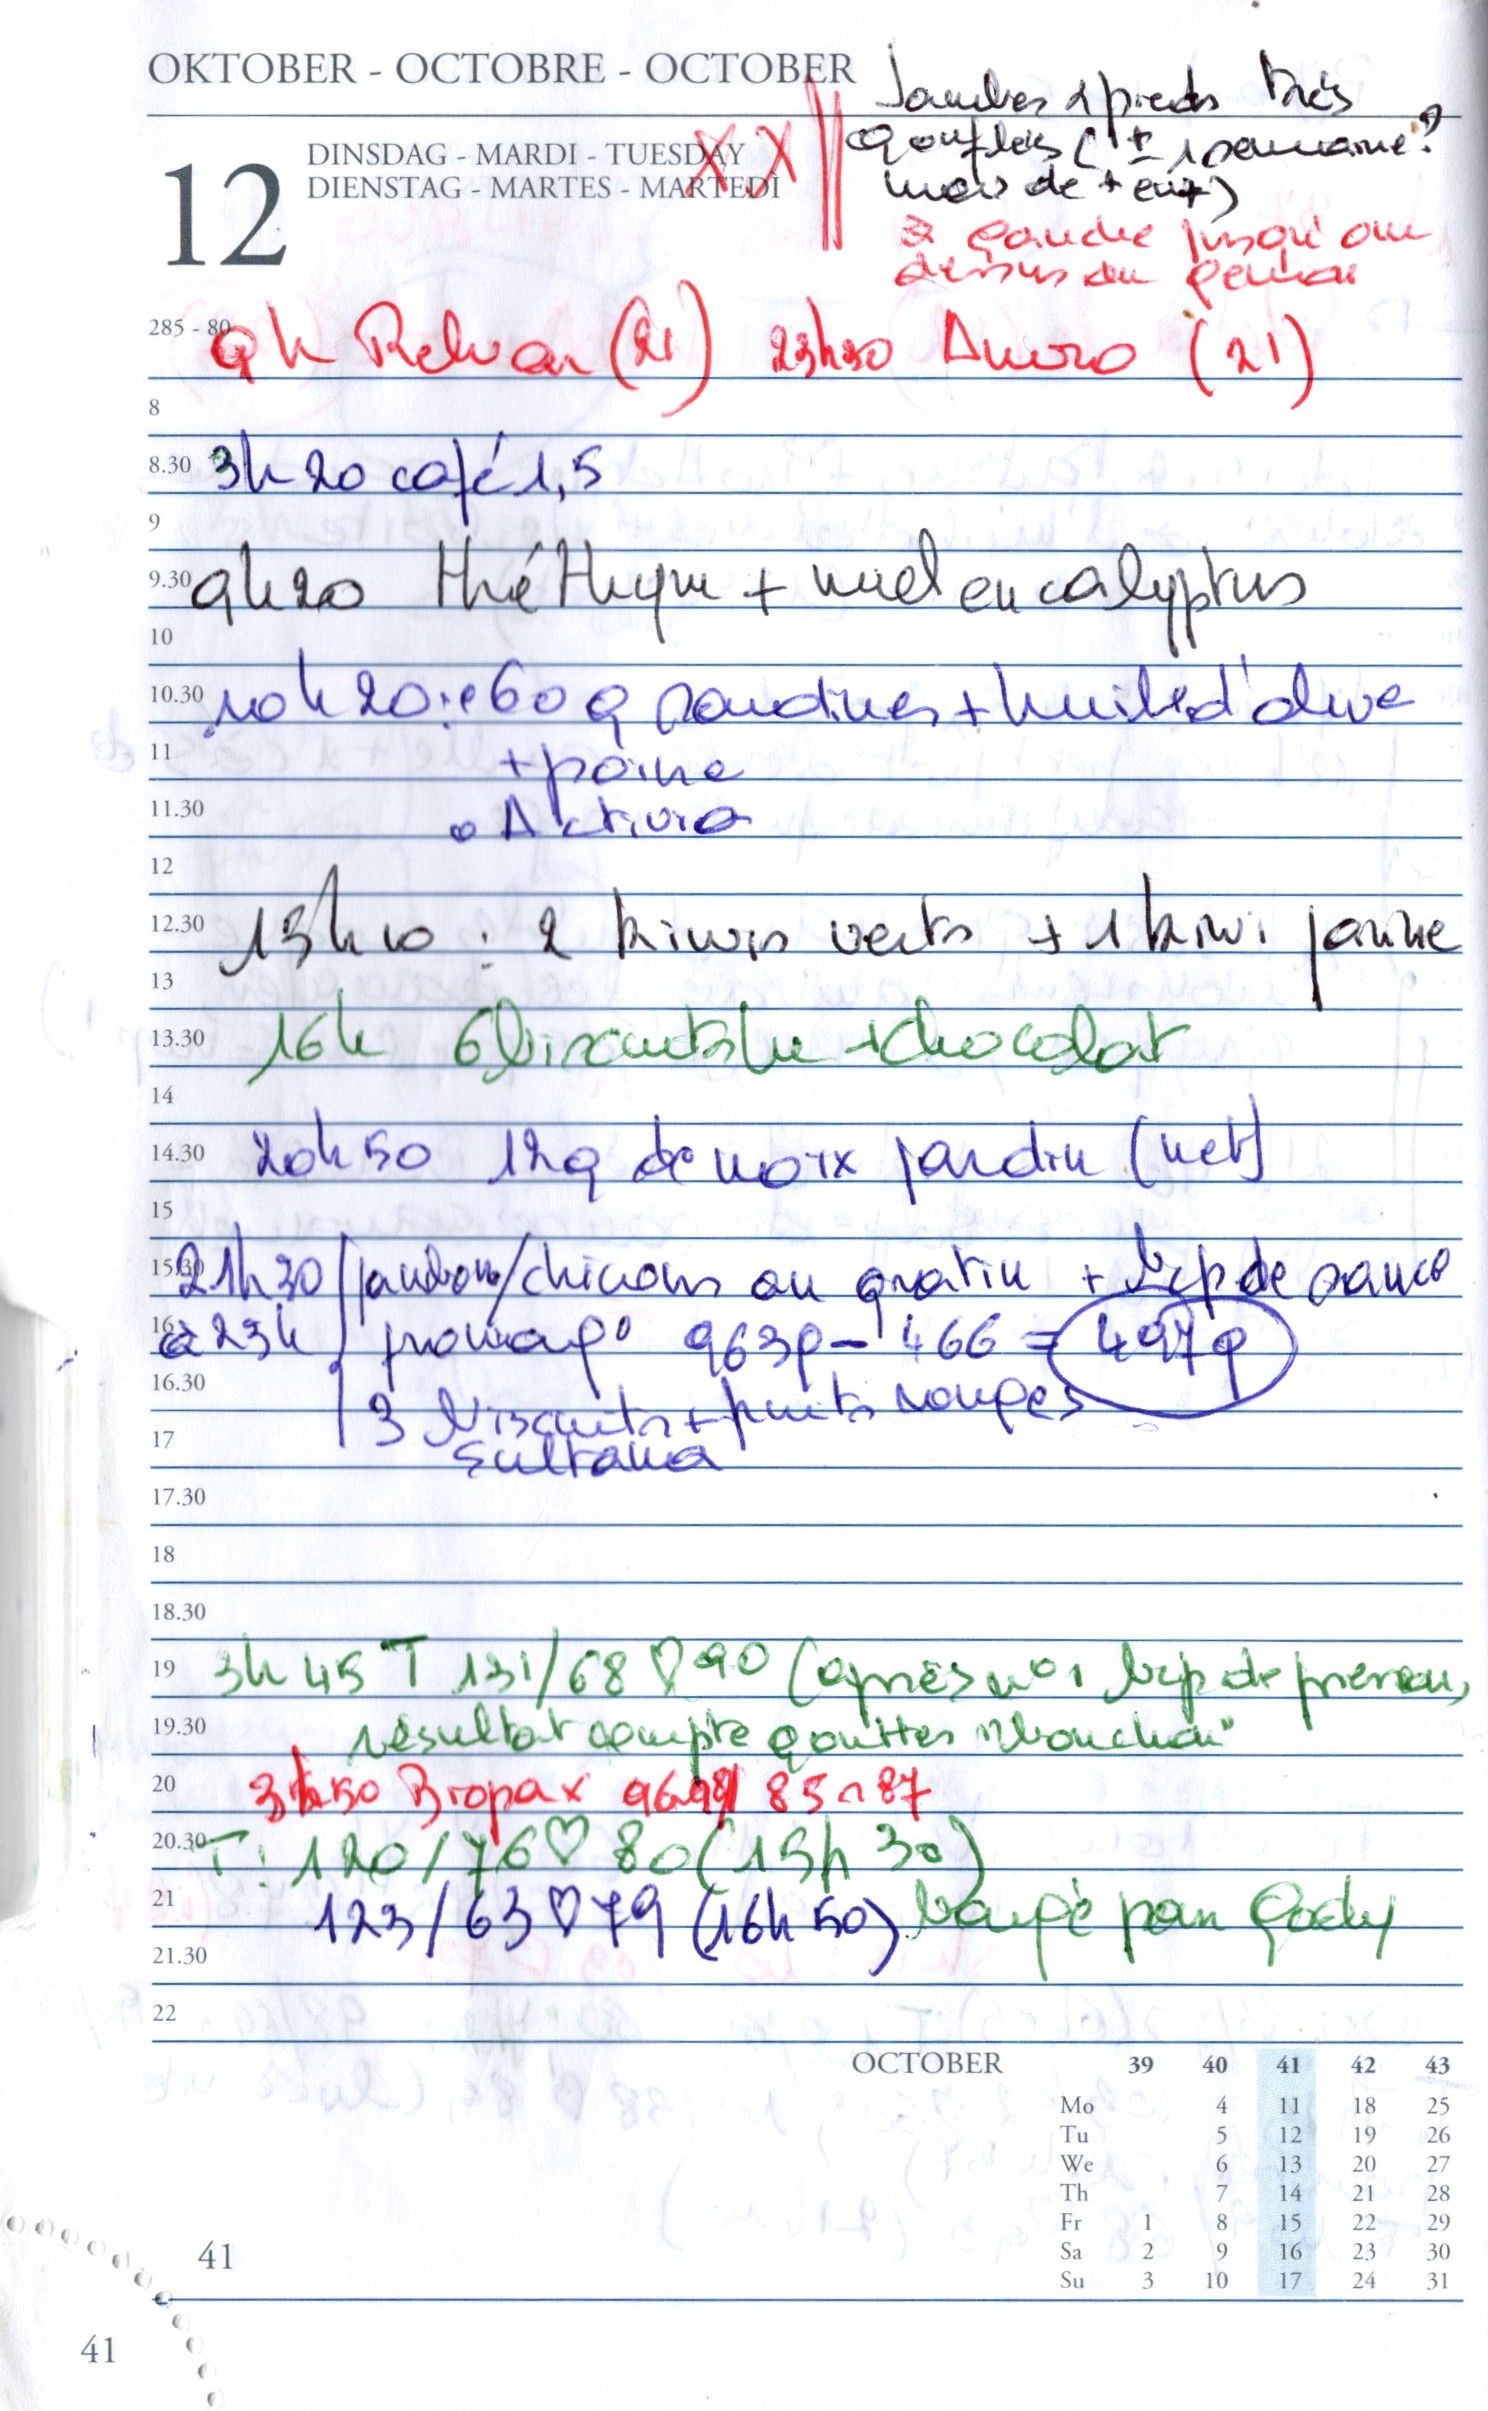 OKTOBER - OCTOBRE - OCTOBER
Jambes & pieds très
gonflés ( ± 1 semaine?
mais de + en +)
à gauche jusqu'au
dessus du genou
12
DINSDAG - MARDI - TUESDAY
DIENSTAG - MARTES - MARTEDÌ
XX
285 - 80
9h Relvar (21) 23h30 Anoro (21)
8
8.30 3h20 café 1,5
9
9.30 9h20 thé thym + miel eucalyptus
10
10.30 10h20: 60g sardines + huile d'olive
11 + poire
11.30 • Activia
12
12.30 13h10 : 2 kiwis verts + 1 kiwi jaune
13
13.30 16h 6 biscuits + chocolat
14
14.30 20h50 12g de noix jardin (net)
15
15.30 21h30 jambon/chicons au gratin + de sauce
16 à 23h fromage 963g - 466 = 497g
16.30 3 biscuits + fruits rouges
17 Sultana
17.30
18
18.30
19 3h45 T 131/68 ♡ 90 (après n°1
19.30 résultat compte gouttes "bouchon"
20 3h50 Bropax 96 98/ 85 87
20.30 T: 120/76 ♡ 80 (15h30)
21 123/63 ♡ 79 (16h50) par Gody
21.30
22
OCTOBER 39 40 41 42 43
Mo 4 11 18 25
Tu 5 12 19 26
We 6 13 20 27
Th 7 14 21 28
Fr 1 8 15 22 29
Sa 2 9 16 23 30
Su 3 10 17 24 31
41
41